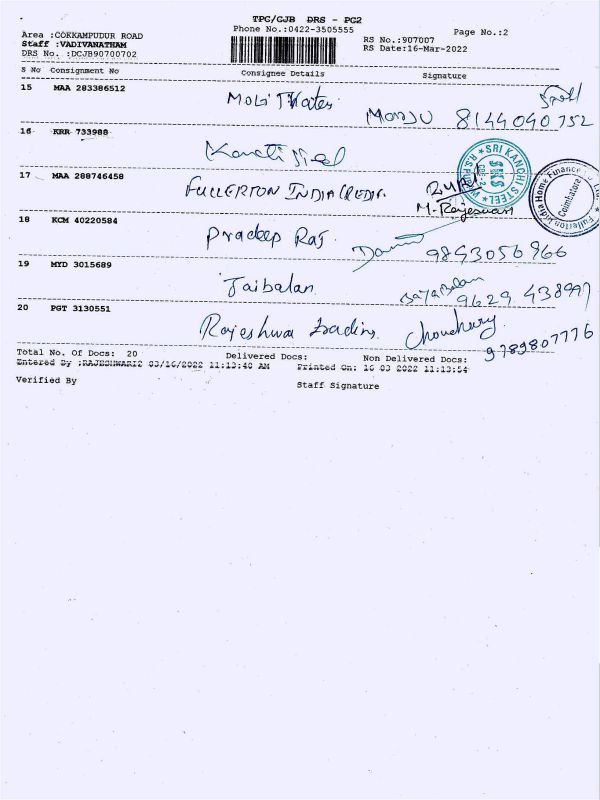 TPC/CJB DRS - PC2
Phone No.:0422-3505555
Page No.:2
Area :COKKAMPUDUR ROAD
Staff :VADIVANATHAM
DRS No. :DCJB90700702
RS No.:907007
RS Date:16-Mar-2022
S No Consignment No Consignee Details Signature
15 MAA 283386512
MONJU 8144040752
16 KRR 733988
SRI KANCHI STEEL
SKS
17 MAA 288746458 FULLERTON INDIA CREDIT.
M. Rajeswari
Fullerton India Home Finance
Coimbatore
18 KCM 40220584 Pradeep Raj.
9843056966
19 MYD 3015689 Jaibalan
20 PGT 3130551 Rajeshwar Trading. Choudhury.
9789807776
Total No. Of Docs: 20 Delivered Docs: Non Delivered Docs:
Entered By :RAJESHWARI2 03/16/2022 11:13:40 AM Printed On: 16 03 2022 11:13:54
Verified By Staff Signature